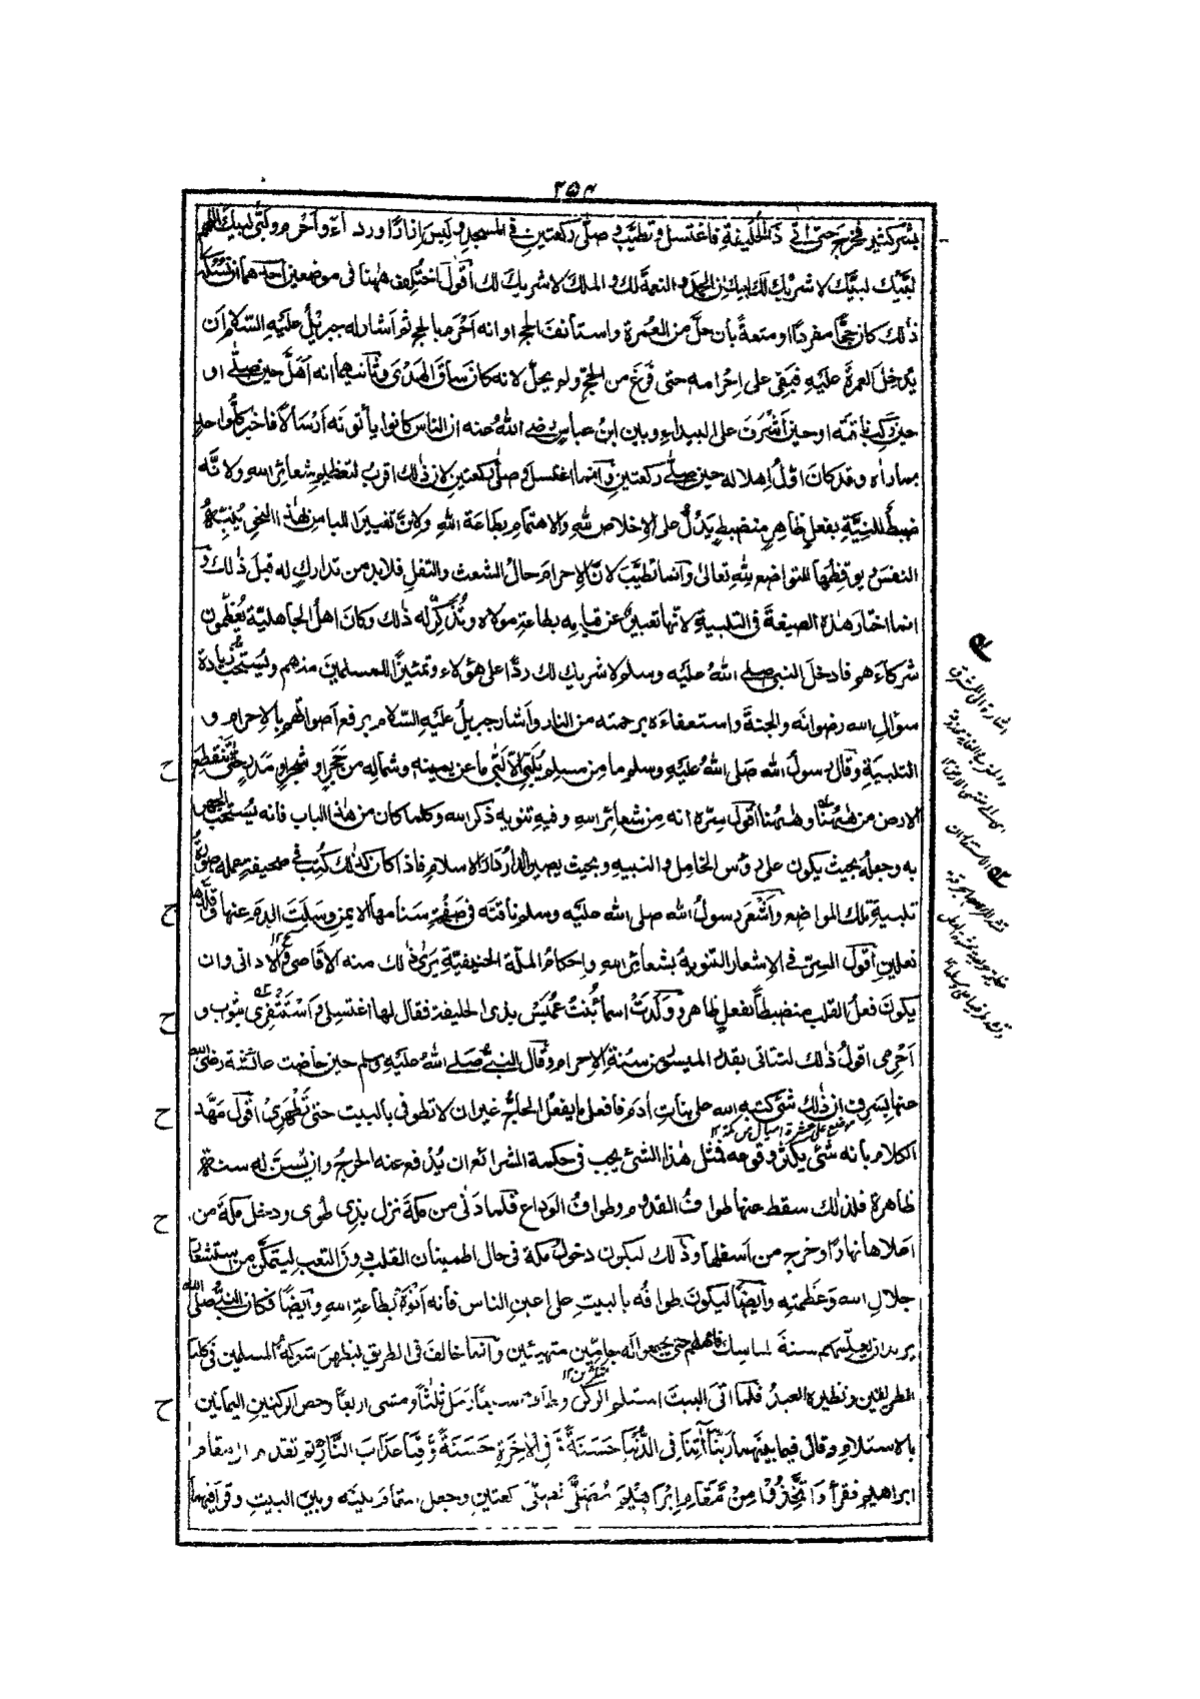 ٢٥٤
بشر كثير فخرج حتى اتى ذا الحُلَيفة فاغتسل وتطيب و صلى ركعتين فى المسجد ولبس إزارًا ورداءً و أحرم و لبّى لبيك اللهم
لبَّيْك لبيَّك لا شريك لك لبيك ان الحمد و النعمة لك و الملك لا شريك لك أقول اختُلِف ههنا فى موضعين احدهما ان نسكه
ذلك كان حجًّا مفردًا او متعةً بأن حلّ من العُمرة واستأنف الحج او انه أحرم بالحج ثم أشار له جبرئيل عليه السلام أن
يُدخل العمرة عليه فبقى على إحرامه حتى فرغ من الحج ولم يحلّ لانه كان ساق الهَدْى وثانيهما انه أهَلَّ حين صلّى او
حين ركب ناقته او حين أشرف على البيداء وبين ابن عباس رضى اللهُ عنه ان الناس كانوا يأتونه أرْسالًا فاخبر كلُّ واحد
بما راٰه وقد كان اوّلُ إهلاله حين صلى ركعتين وانما اغتسل و صلى ركعتين لان ذٰلك اقرب لتعظيم شعائر الله ولانّه
ضبطٌ للنيَّة بفعلٍ ظاهرٍ منضبطٍ يَدُلّ على الإخلاص للهِ والاهتمام بطاعة اللهِ ولانَّ تغيير اللباس بهذا النحو يُنبّهُ
النفسَ و يوقظها للتواضع للهِ تعالىٰ وانما تطيَّب لانّ الإحرام حالُ الشعث والتفل فلابد من تدارك له قبلَ ذٰلك و
انما اختار هذه الصيغةَ فى التلبية لانها تعبيرٌ عن قيامه بطاعةِ مولاه و تُذَكِّرله ذٰلك وكان اهلُ الجاهليّة يُعَظّمون
شركآءَهم فادخل النبى صلى اللهُ عليه وسلم لا شريك لك ردًّا على هؤلاء وتمييزًا للمسلمين منهم ويُستحبّ زيادة
سؤال الله رضوانَه والجنةَ واستعفاءَه برحمته من النار وأشار جبريلُ عليه السّلام برفع أصواتهم بالإحرام و
التلبيَة وقال رسولُ الله صَلى اللهُ عليه وسلم ما من مسلم يُلَبِّى إلا لَبّى ما عن يمينه وشماله من حَجَرٍ او شجرٍ او مَدَرٍ حتّٰى تنقطع
الارض من هٰهُنا وهٰهُنا اقول سِرّه انه من شعائر الله و فيه تنويه ذكر الله وكلما كان من هذا الباب فانه يُستحب الجهر
به وجعلُه بحيث يكون على رؤس الخامل و النبيه وبحيث يصير الدار دارَ الاسلام فاذا كان كذلك كُتب فى صحيفة عمله صورةُ
تلبية تلك المواضع وأشعر رسولُ الله صلى الله عليه وسلم ناقته فى صَفْحةِ سَنامها الايمن وسَلَت الدم عنها وقلَّدها
نعلين أقول السِرّ فى الإشعار التنويهُ بشعائر الله وإحكامُ الملّة الحنيفيّة يَرى ذٰلك منه الاقاصى والادانى وان
يكون فعلُ القلب منضبطًا بفعل ظاهر ووَلَدَتْ اسماءُ بنتُ عُمَيْس بذى الحليفة فقال لها اغتسلى وَاسْتَثْفِرى بثوب و
أحرمى اقولُ ذٰلك لتتاتى بقدر الميسور من سُنة الإحرام وقال النبىُّ صَلى اللهُ عليه وسلم حين حاضت عائشة رضى الله
عنها بسَرِف ان ذلك شئ كتبه الله على بنات آدم فافعلى ما يفعل الحاج غير ان لا تطوفى بالبيت حتى تَطْهُرِىْ اقول مَهَّد
موضع على عشرة اميال من مكة ١٢
الكلام بانه شئ يكثر وقوعه فمثل هٰذا الشئ يجب فى حكمة الشرائع ان يُدْفع عنه الحرجُ وان يُسَنّ له سنةٌ
ظاهرة فلذلك سقط عنها طوافُ القدوم وطوافُ الوداع فلما دَنٰى من مكةَ نزل بذِى طُوٰى ودخل مكة من
اعلاها نهارًا وخرج من أسفلها وذٰلك ليكون دخولُ مكة فى حال اطمينان القلب دون التعب ليتمكّن من استشعار
جلالِ الله وعَظْمتِه وأيضًا ليكون طوافُه بالبيت على أعين الناس فانه أنْوَهُ بطاعة الله وأيضًا فكان النبىُّ صلى الله
يريد ان يعلّمهم سنة المناسك فامهلهم حتى يجتمعوا له جامّين متهيئين وانما خالف فى الطريق ليظهر شوكةُ المسلمين فى كلتا
الطريقين ونظيره العيدُ فلما اتى البيتَ استلم الركن وطاف سبعًا رَمَل ثلٰثًا ومشى اربعًا وخص الركنين اليمانيَين
بالاستلام وقال فيما بينهما رَبَّنَآ اٰتِنَا فِى الدُّنْيَا حَسَنَةً وَّفِى الْاٰخِرَةِ حَسَنَةً وَّقِنَا عَذَابَ النَّارِ ثم تقدم الى مقام
ابراهيم فقرأ وَاتَّخِذُوْا مِنْ مَّقَامِ اِبْرَاهِيْمَ مُصَلًّى فصلّى ركعتين وجعل المقام بينه وبين البيت وقرأ فيهما
ح
ح
ح
ح
ح
ح